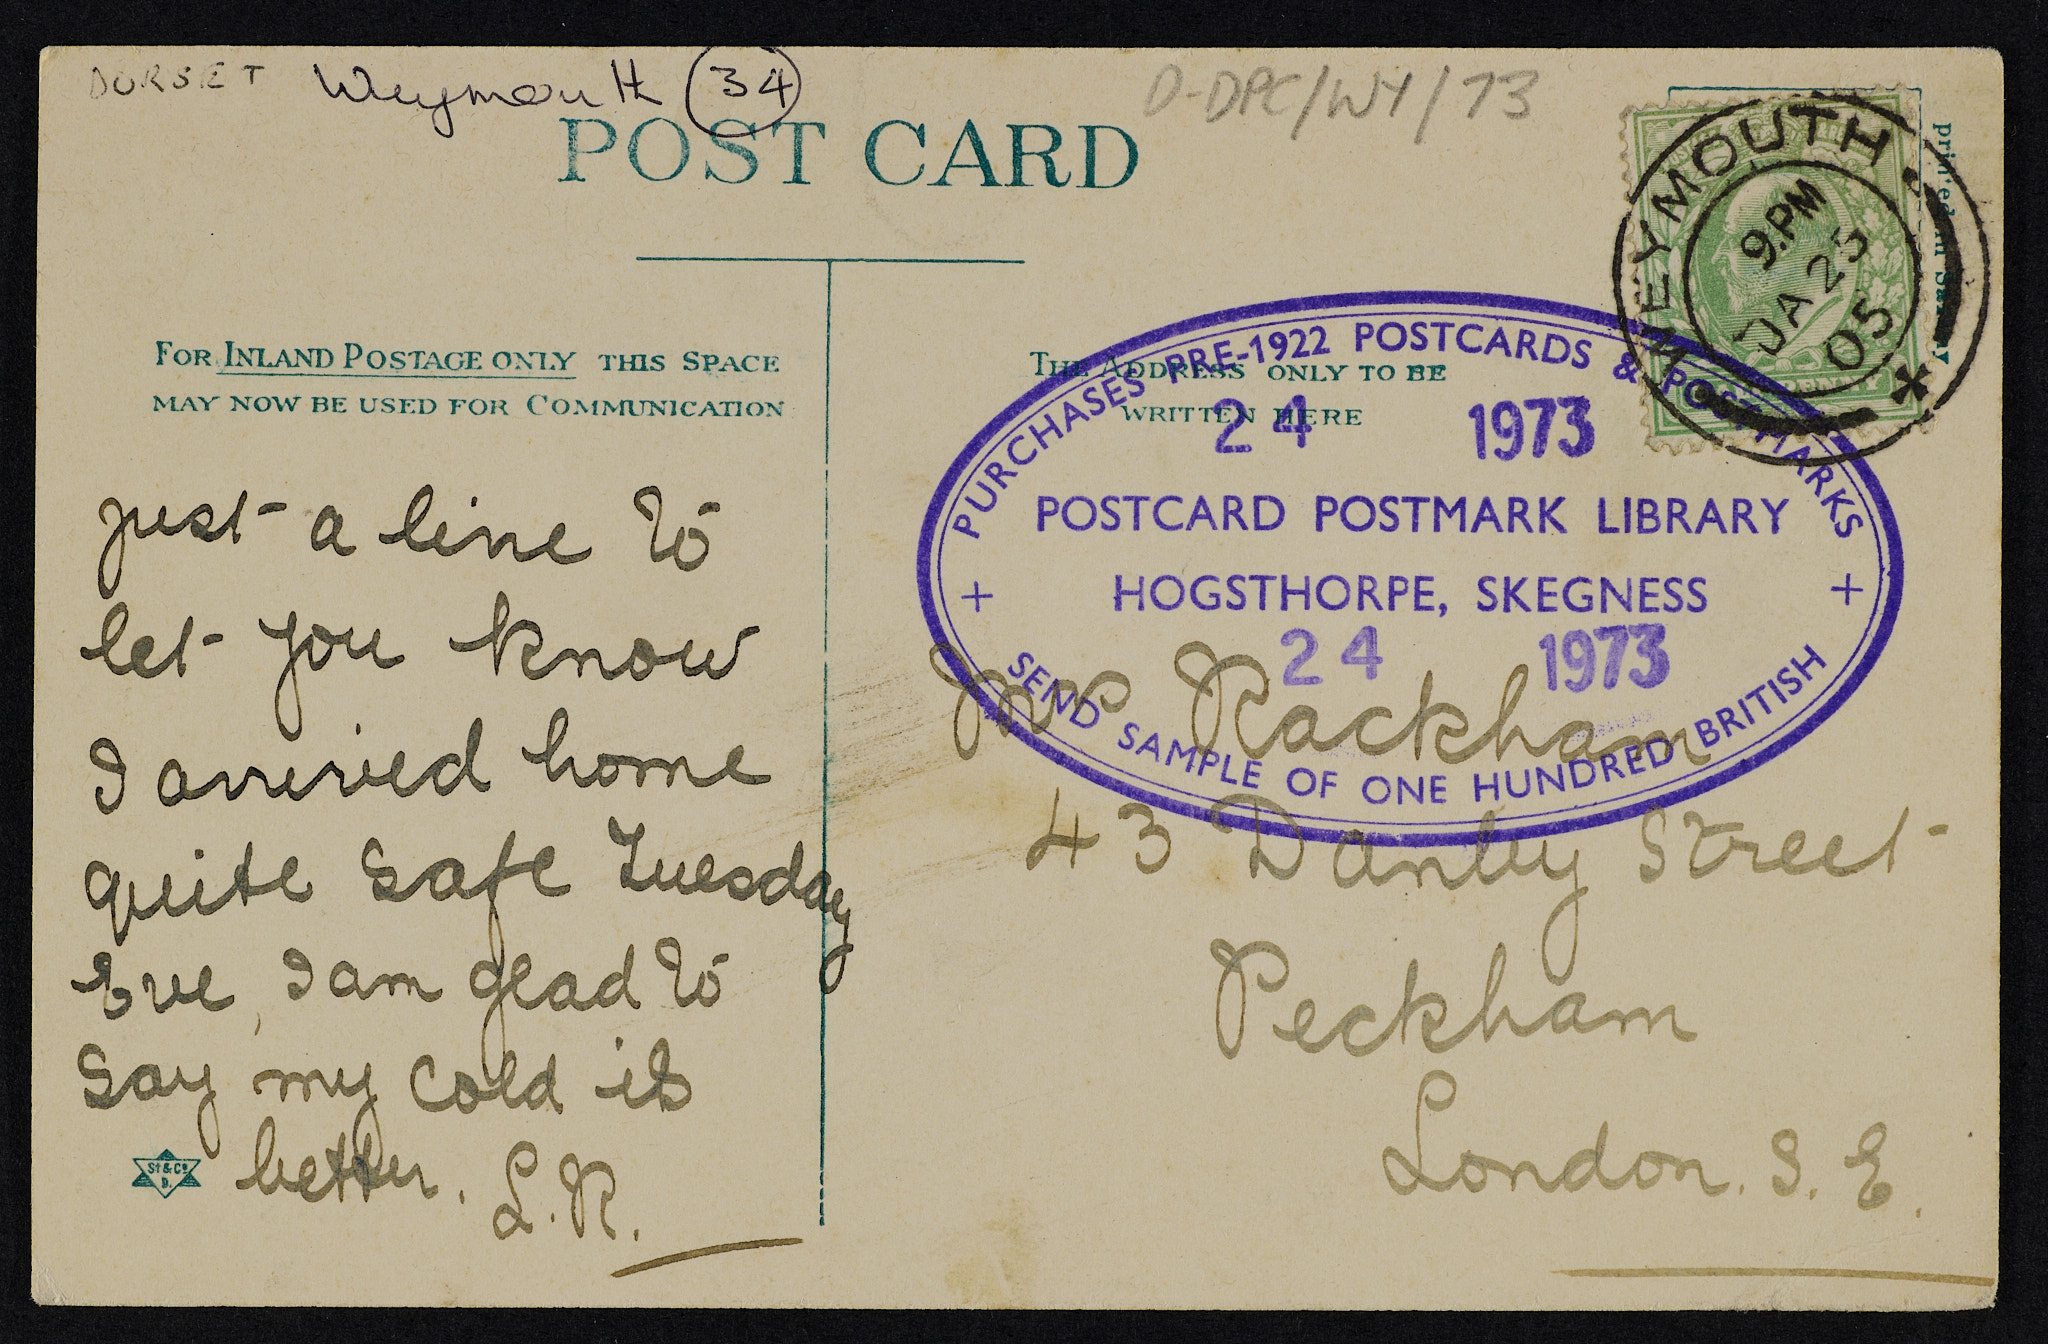 DORSET Weymouth 34
D-DPC/WY/73
POST CARD
FOR INLAND POSTAGE ONLY THIS SPACE
MAY NOW BE USED FOR COMMUNICATION
THE ADDRESS ONLY TO BE
WRITTEN HERE
WEYMOUTH
9.PM
JA 25
05
PURCHASES PRE-1922 POSTCARDS & POSTMARKS
24 1973
POSTCARD POSTMARK LIBRARY
HOGSTHORPE, SKEGNESS
24 1973
SEND SAMPLE OF ONE HUNDRED BRITISH
just a line to
let you know
I arrived home
quite safe Tuesday
Eve, I am glad to
say my cold is
better.
L.R.
St & Co
D.
Rackham
43 Danby Street
Peckham
London. S. E.